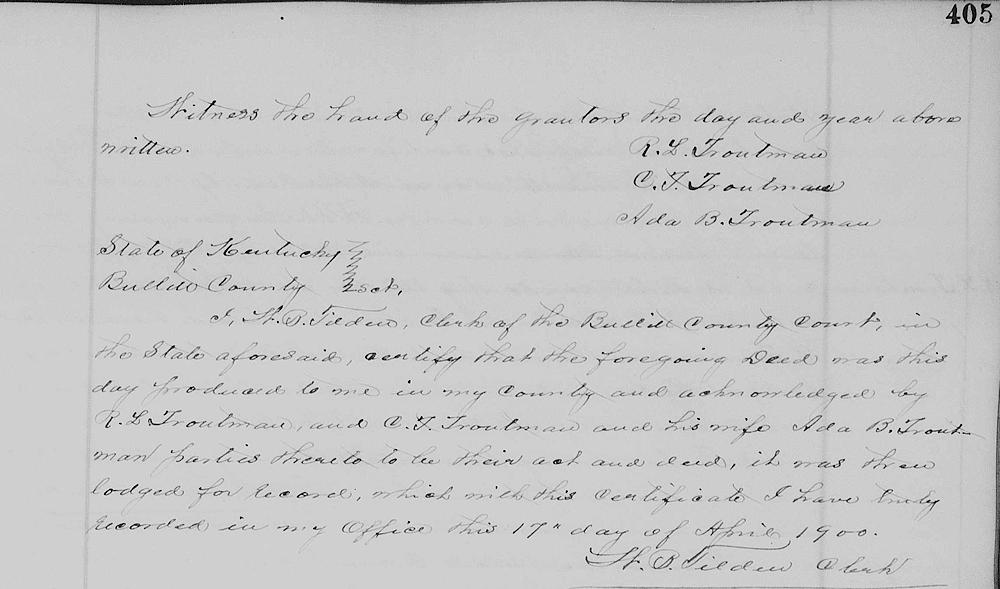 405
Witness the hand of the grantors the day and year above
written.
R. L. Troutman
C. F. Troutman
Ada B. Troutman
State of Kentucky
Bullitt County sct,
I, W. B. Tilden, Clerk of the Bullitt County Court, in
the State aforesaid, certify that the foregoing Deed was this
day produced to me in my County and acknowledged by
R. L Troutman, and C. F. Troutman and his wife Ada B. Trout-
man parties thereto to be their act and deed, it was then
lodged for record, which with this certificate I have truly
recorded in my Office this 17" day of April 1900.
W. B. Tilden Clerk